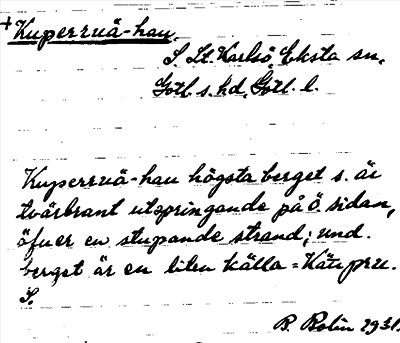 +Kuperruä-hau.
S. Lt. Karlsö, Eksta sn,
Gotl. s. hd, Gotl. l.
Kuperruä-hau högsta berget s. är
tvärbrant utspringande på ö sidan,
öfver en stupande strand; und.
berget är en liten källa = Kätipru.
S.
B. Bolin 1931.